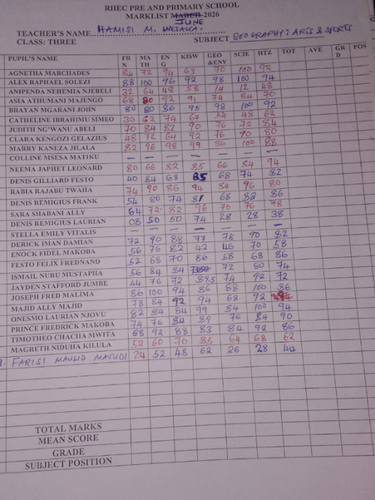 RHEC PRE AND PRIMARY SCHOOL
MARKLIST MARCH 2026
JUNE
TEACHER'S NAME HAMISI M.
CLASS: THREE SUBJECT GEOGRAPHY: ARTS & SPORTS
PUPIL'S NAME FRN MATH ENG KISW GEO&ENV SCIE HTZ TOT AVE GRD POS
AGNETHA MARCHADES 84 92 94 63 70 100 92
ALEX RAPHAEL SOLEZI 88 100 96 92 98 100 94
ANIPENDA NEHEMIA NJEBELI 32 64 48 58 14 12 48
ASIA ATHUMANI MAJENGO 68 80 92 91 74 84 90
BRAYAN NGARANI JOHN 80 80 86 95 98 100 92
CATHELINE IBRAHIMU SIMEO 30 62 74 67 48 62
JUDITH NG'WANU ABELI 70 84 82 90 76 72 84
CLARA KENGOZI GELAZIUS 48 72 64 92 76 90 80
MARRY KANEZA JILALA 82 96 98 99 86 100 88
COLLINE MSESA MATIKU – – – – – – –
NEEMA JAPHET LEONARD 80 66 82 85 66 84 94
DENIS GILLIARD FESTO 40 84 68 85 68 74 82
RABIA RAJABU TWAHA 74 90 86 94 84 96 80
DENIS REMIGIUS FRANK 54 80 74 81 68 88 86
SARA SHABANI ALLY 64 72 82 76 70 76 78
DENIS REMIGIUS LAURIAN 08 50 50 74 28 28 38
STELLA EMILY VITALIS – – – – – – –
DERICK IMAN DAMIAN 72 90 88 77 78 90 82
ENOCK FIDEL MAKOBA 56 76 82 42 46 70 58
FESTO FELIX FREDNAND 52 68 70 86 58 68 86
ISMAIL NURU MUSTAPHA 56 84 84 72 60 74
JAYDEN STAFFORD JUMBE 44 76 72 74 92 72
JOSEPH FRED MALIMA 86 100 94 86 68 100 86
MAJID ALLY MAJID 78 84 92 94 68 72
ONESMO LAURIAN NJOVU 82 84 84 99 84 100 94
PRINCE FREDRICK MAKOBA 74 76 84 85 76 84 90
TIMOTHEO CHACHA MWITA 68 92 88 83 84 92 86
MAGRETH NIDUHA KILULA 52 60 70 85 64 68 62
FARISI MAULID MASUDI 24 52 48 62 26 28 44
TOTAL MARKS
MEAN SCORE
GRADE
SUBJECT POSITION